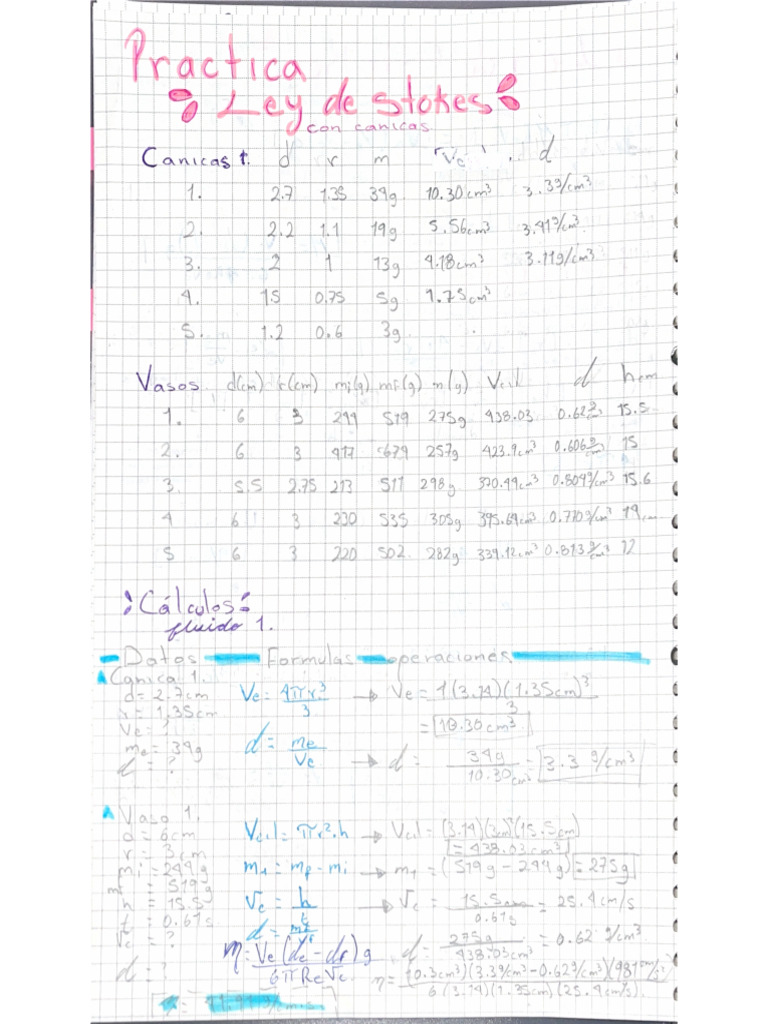 Practica
Ley de Stokes
con canicas
Canicas t. d r m Ve d
1. 2.7 1.35 34g 10.30cm³ 3.3g/cm³
2. 2.2 1.1 19g 5.56cm³ 3.41g/cm³
3. 2 1 13g 4.18cm³ 3.11g/cm³
4. 15 0.75 5g 1.75cm³
5. 1.2 0.6 3g
Vasos d(cm) r(cm) mi(g) mf(g) m(g) Vcil d hcm
1. 6 3 244 519 275g 438.03 0.62 g/cm 15.5
2. 6 3 417 679 257g 423.9cm³ 0.606 g/cm 15
3. 5.5 2.75 213 511 298g 370.49cm³ 0.804g/cm³ 15.6
4 6 3 230 535 305g 395.64cm³ 0.770g/cm³ 14cm
5 6 3 220 502 282g 339.12cm³ 0.813g/cm³ 12
Cálculos
fluido 1.
Datos Formulas operaciones
Canica 1.
d= 2.7cm
r= 1,35cm
Ve= ?
me= 34g
d = ?
Ve= 4πr³/3 → Ve= 4(3.14)(1.35cm)³/3
= 10.30cm³
d= me/Ve → d= 34g/10.30cm³ = 3.3 g/cm³
Vaso 1.
d= 6cm
r= 3cm
mi=244g
mf= 519g
h= 15.5
t= 0.61s
vc= ?
d= ?
Vcil= πr².h → Vcil= (3.14)(3cm)²(15.5cm)
= 438.03cm³
m1 = mf - mi → m1= (519g - 244g) = 275g
vc = h/t → vc= 15.5cm/0.61s = 25.4cm/s
d= 275g/438.03cm³ = 0.62 g/cm³
η= Ve(de-df)g/6πRevc
η= (10.3cm³)(3.3g/cm³-0.62g/cm³)(981cm/s²)/6(3.14)(1.35cm)(25.4cm/s)